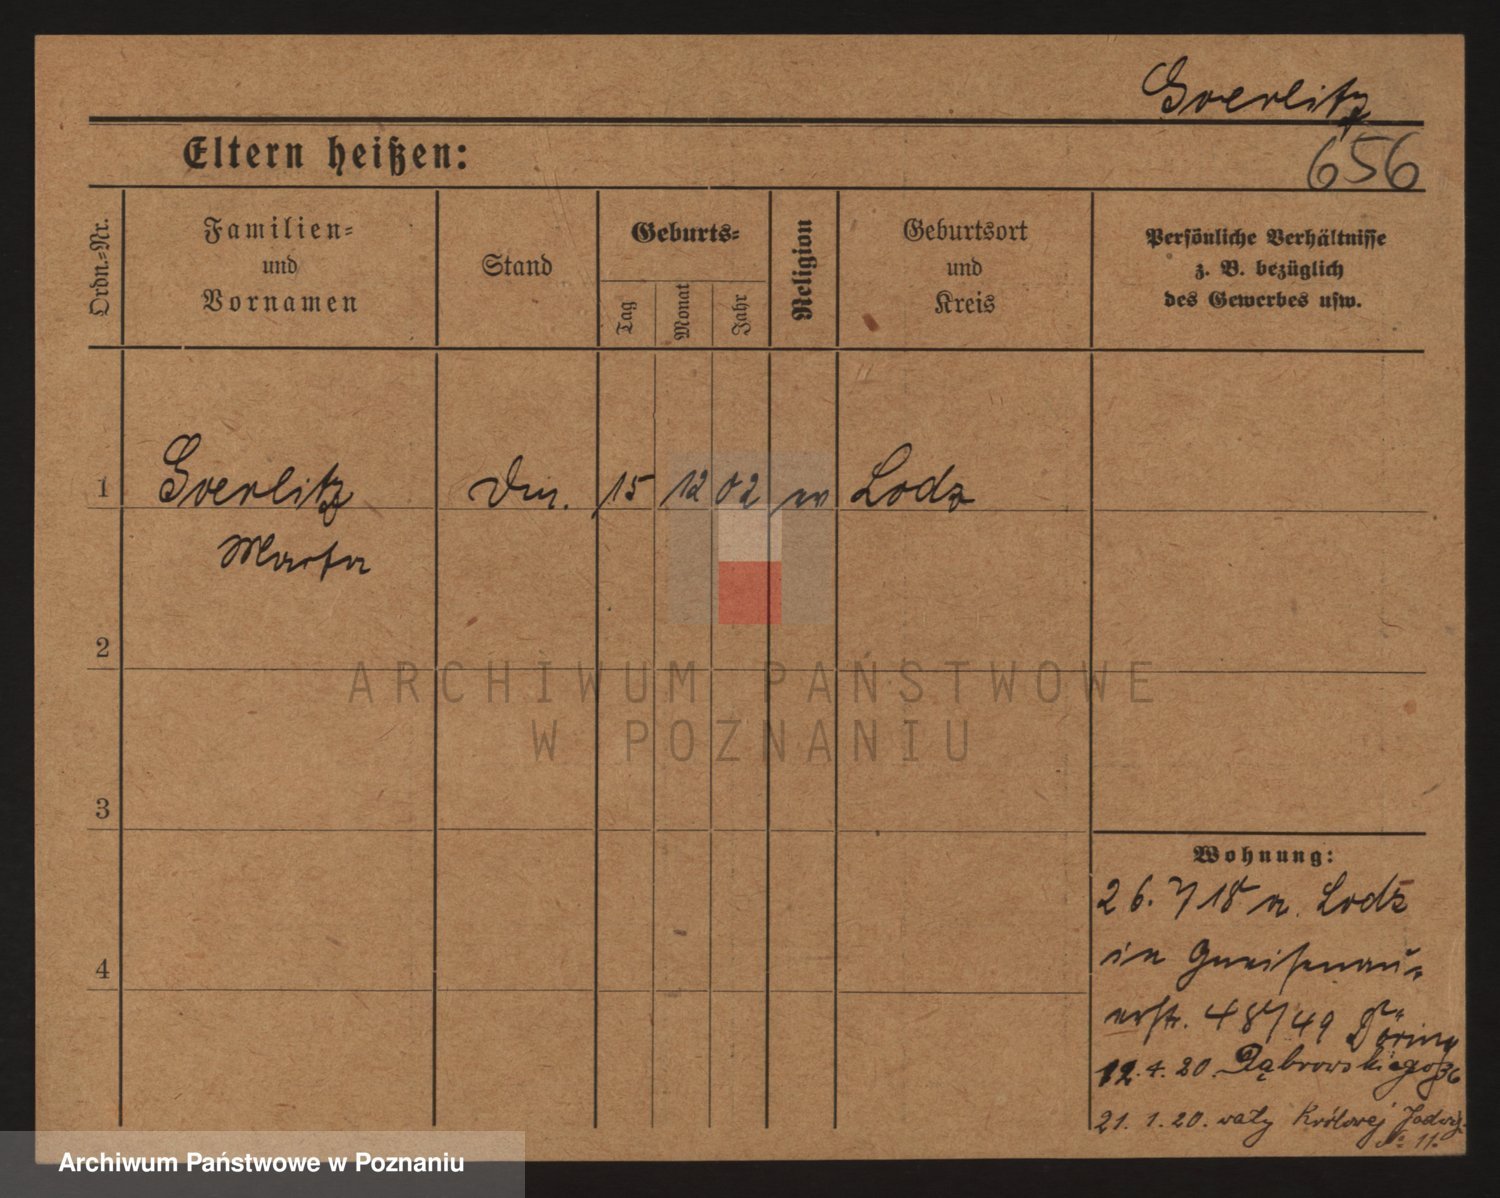 Goerlitz
656
Eltern heißen:
Ordn.-Nr.
Familien-
und
Vornamen
Stand
Geburts-
Tag
Monat
Jahr
Religion
Geburtsort
und
Kreis
Persönliche Verhältnisse
z. B. bezüglich
des Gewerbes usw.
1 Goerlitz 15 12 02 Lodz
Marta
2
ARCHIWUM PAŃSTWOWE
W POZNANIU
3
4
Wohnung:
26. 7 18 a. Lodz
in Gneisenau-
erstr. 48/49 Döring
12. 4. 20. Dąbrowskiego 36
21. 1. 20. wały Królowej Jadwig.
№ 11.
Archiwum Państwowe w Poznaniu